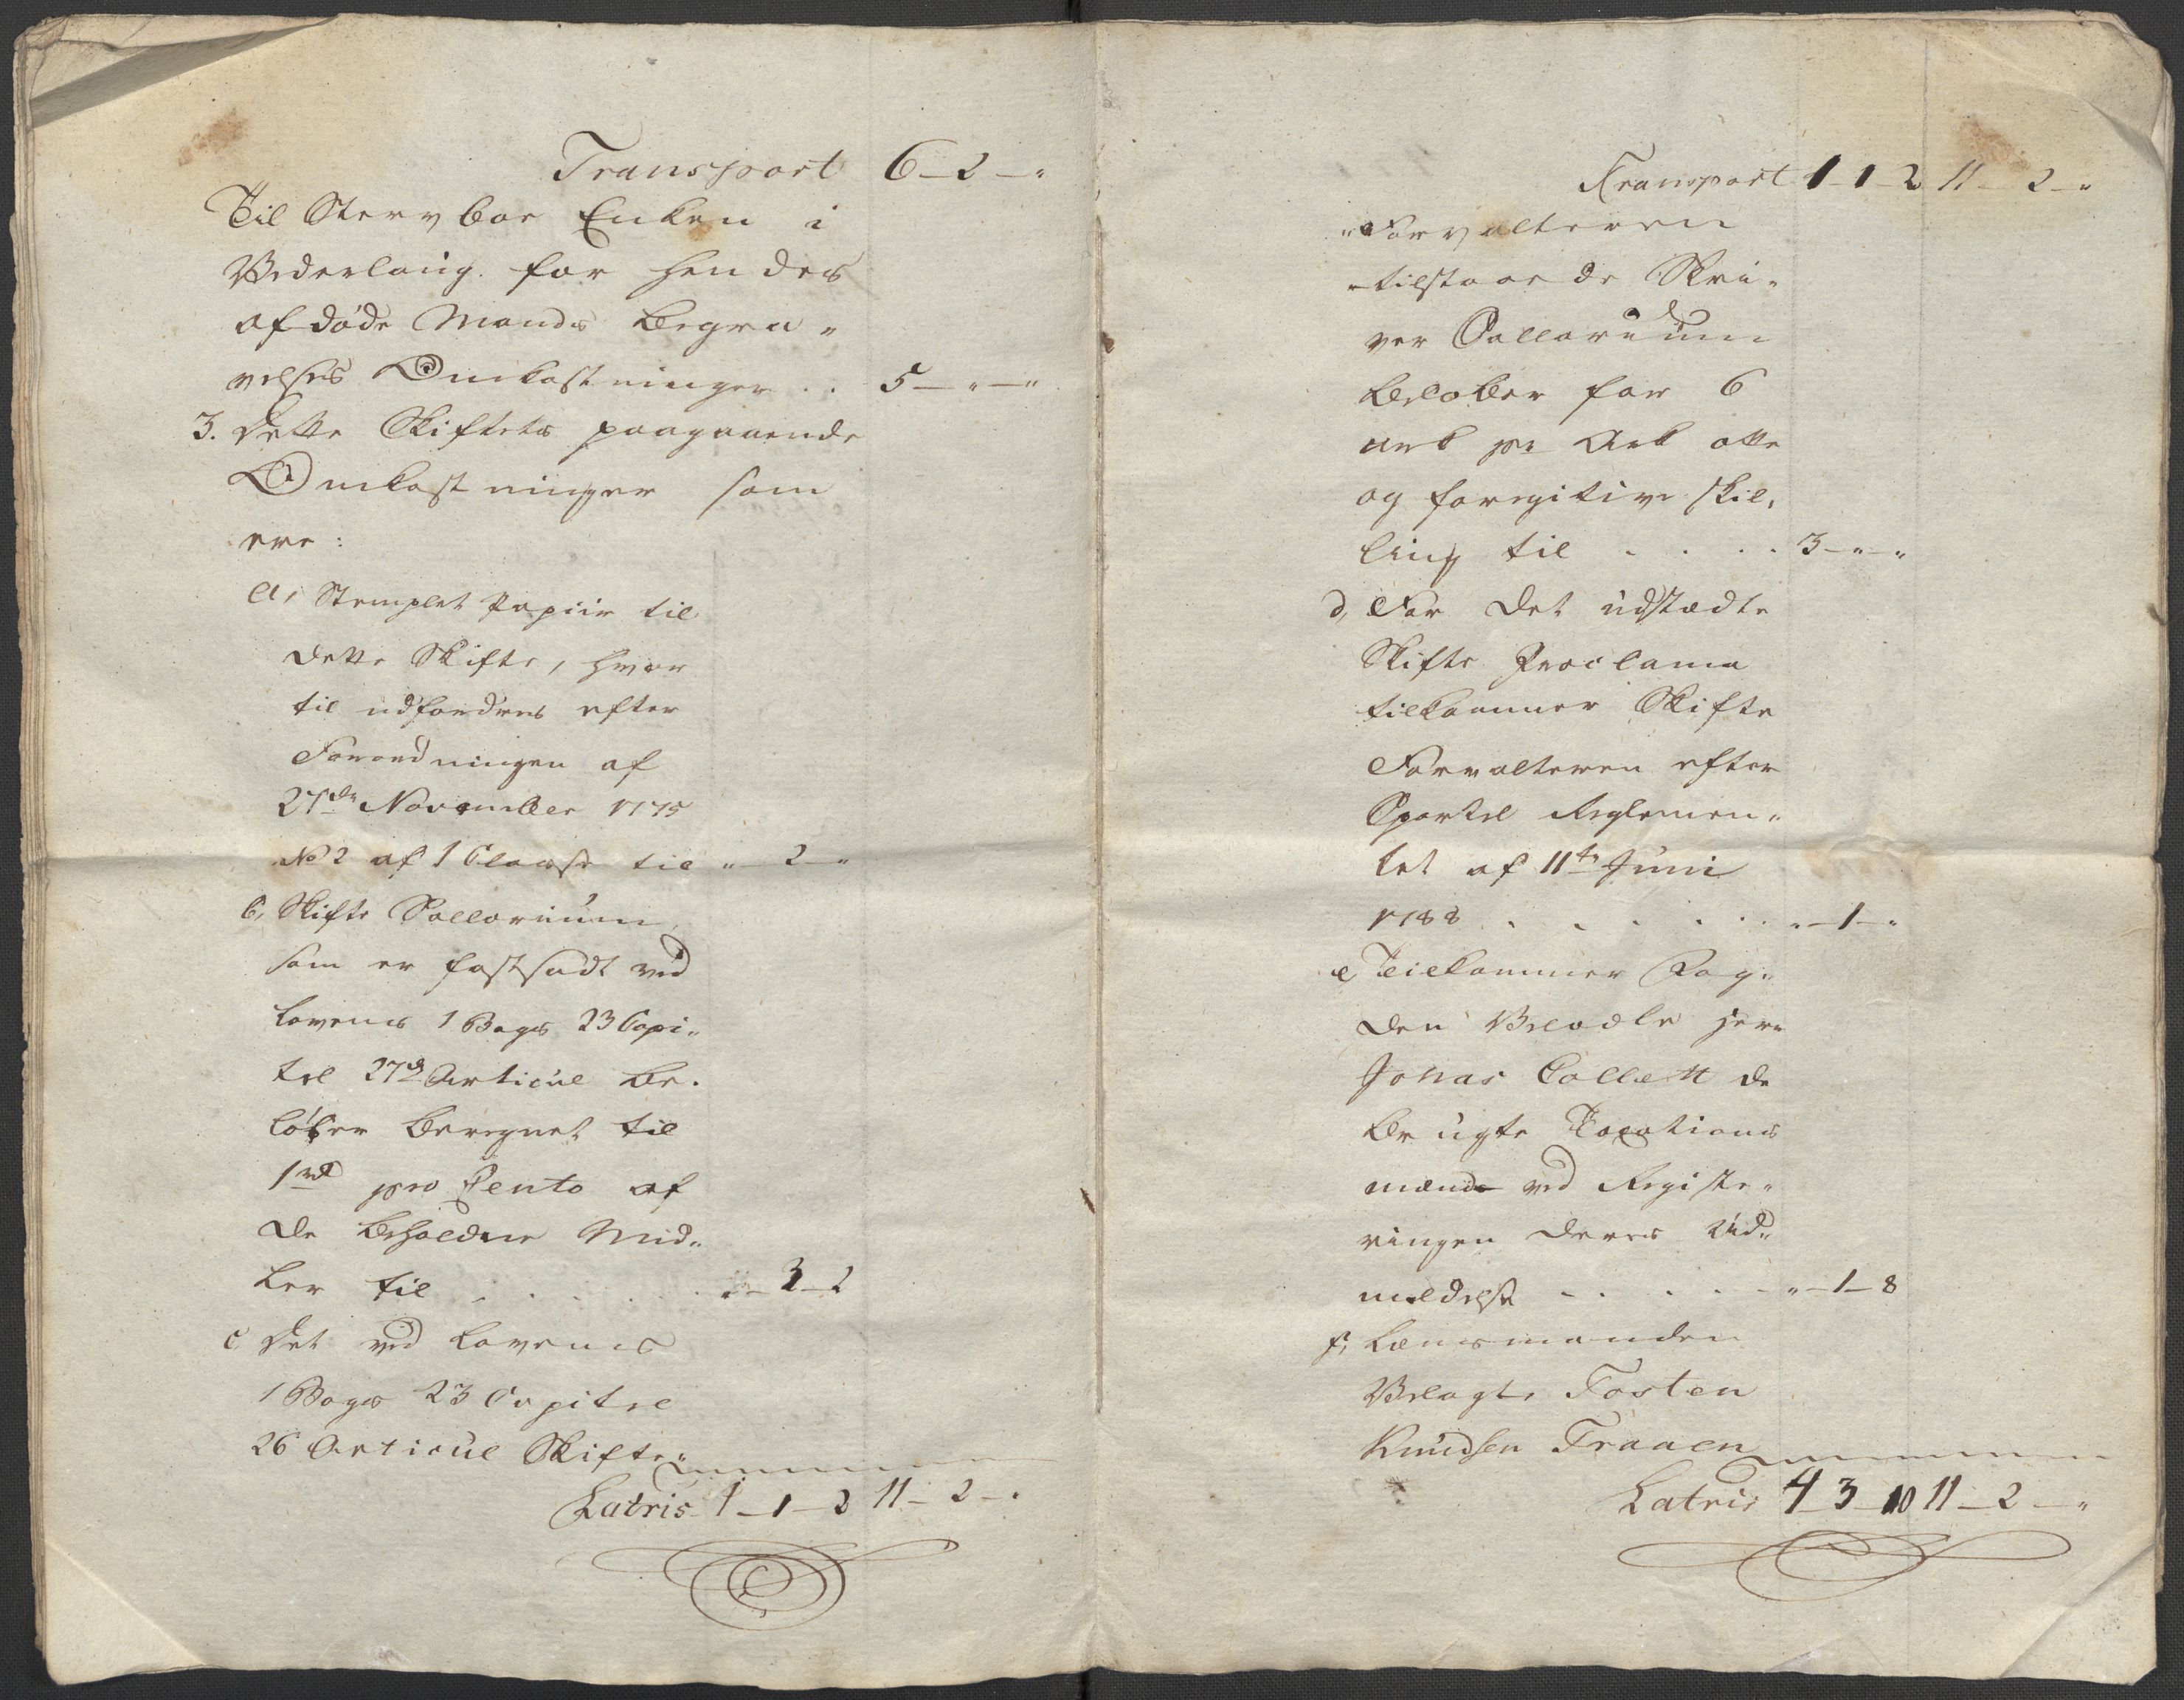 Transport 6 - 2 - "
Til Stervboe Enken i
Vederlaug for hendes
afdøde Mands Begra„
velses Omkostninger . . 5 - " - "
3. dette Skiftets paagaaende
Omkostninger som
ere:
a, Stemplet Papiir til
dette Skifte, hvor
til udfordres efter
Forordningen af
27de November 1775
No 2 af 1 Classe til " - 2 - "
b, Skifte Sallarium,
som er fastsadt ved
Lovens 1 Bogs 23 Capi„
tel 27de Articul be„
løber beregnet til
1 rd pro Cento af
de beholdne Mid„
ler til . . . . . " - 3 - 2
c Det ved Lovens
1 Bogs 23 Capitel
26 Articul Skifte„
Latris 1 - 1 - 2 11 - 2 - "
Transport 1 - 1 - 2 11 - 2 - "
„Forvalteren
„tilstaaede Skri„
ver Sallarium
beløber for 6
ark pr Ark otte
og førgitive skil„
ling til . . . . 3 - " - "
d, For det udstædte
Skifte Proclama
tilkommer Skifte
Forvalteren efter
Sportel Reglemen„
tet af 11te Juni
1788 . . . . . . " - 1 - "
e, Tilkommer Fog„
den Velædle Herr
Jonas Collett de
brugte Taxations
mænd ved Registe„
ringen deres Ud„
meldelse - . . . . " - 1 - 8
f, Lænsmanden
Velagte Tosten
Knudsen Traaen
Latris 4 - 3 - 10 11 - 2 - "